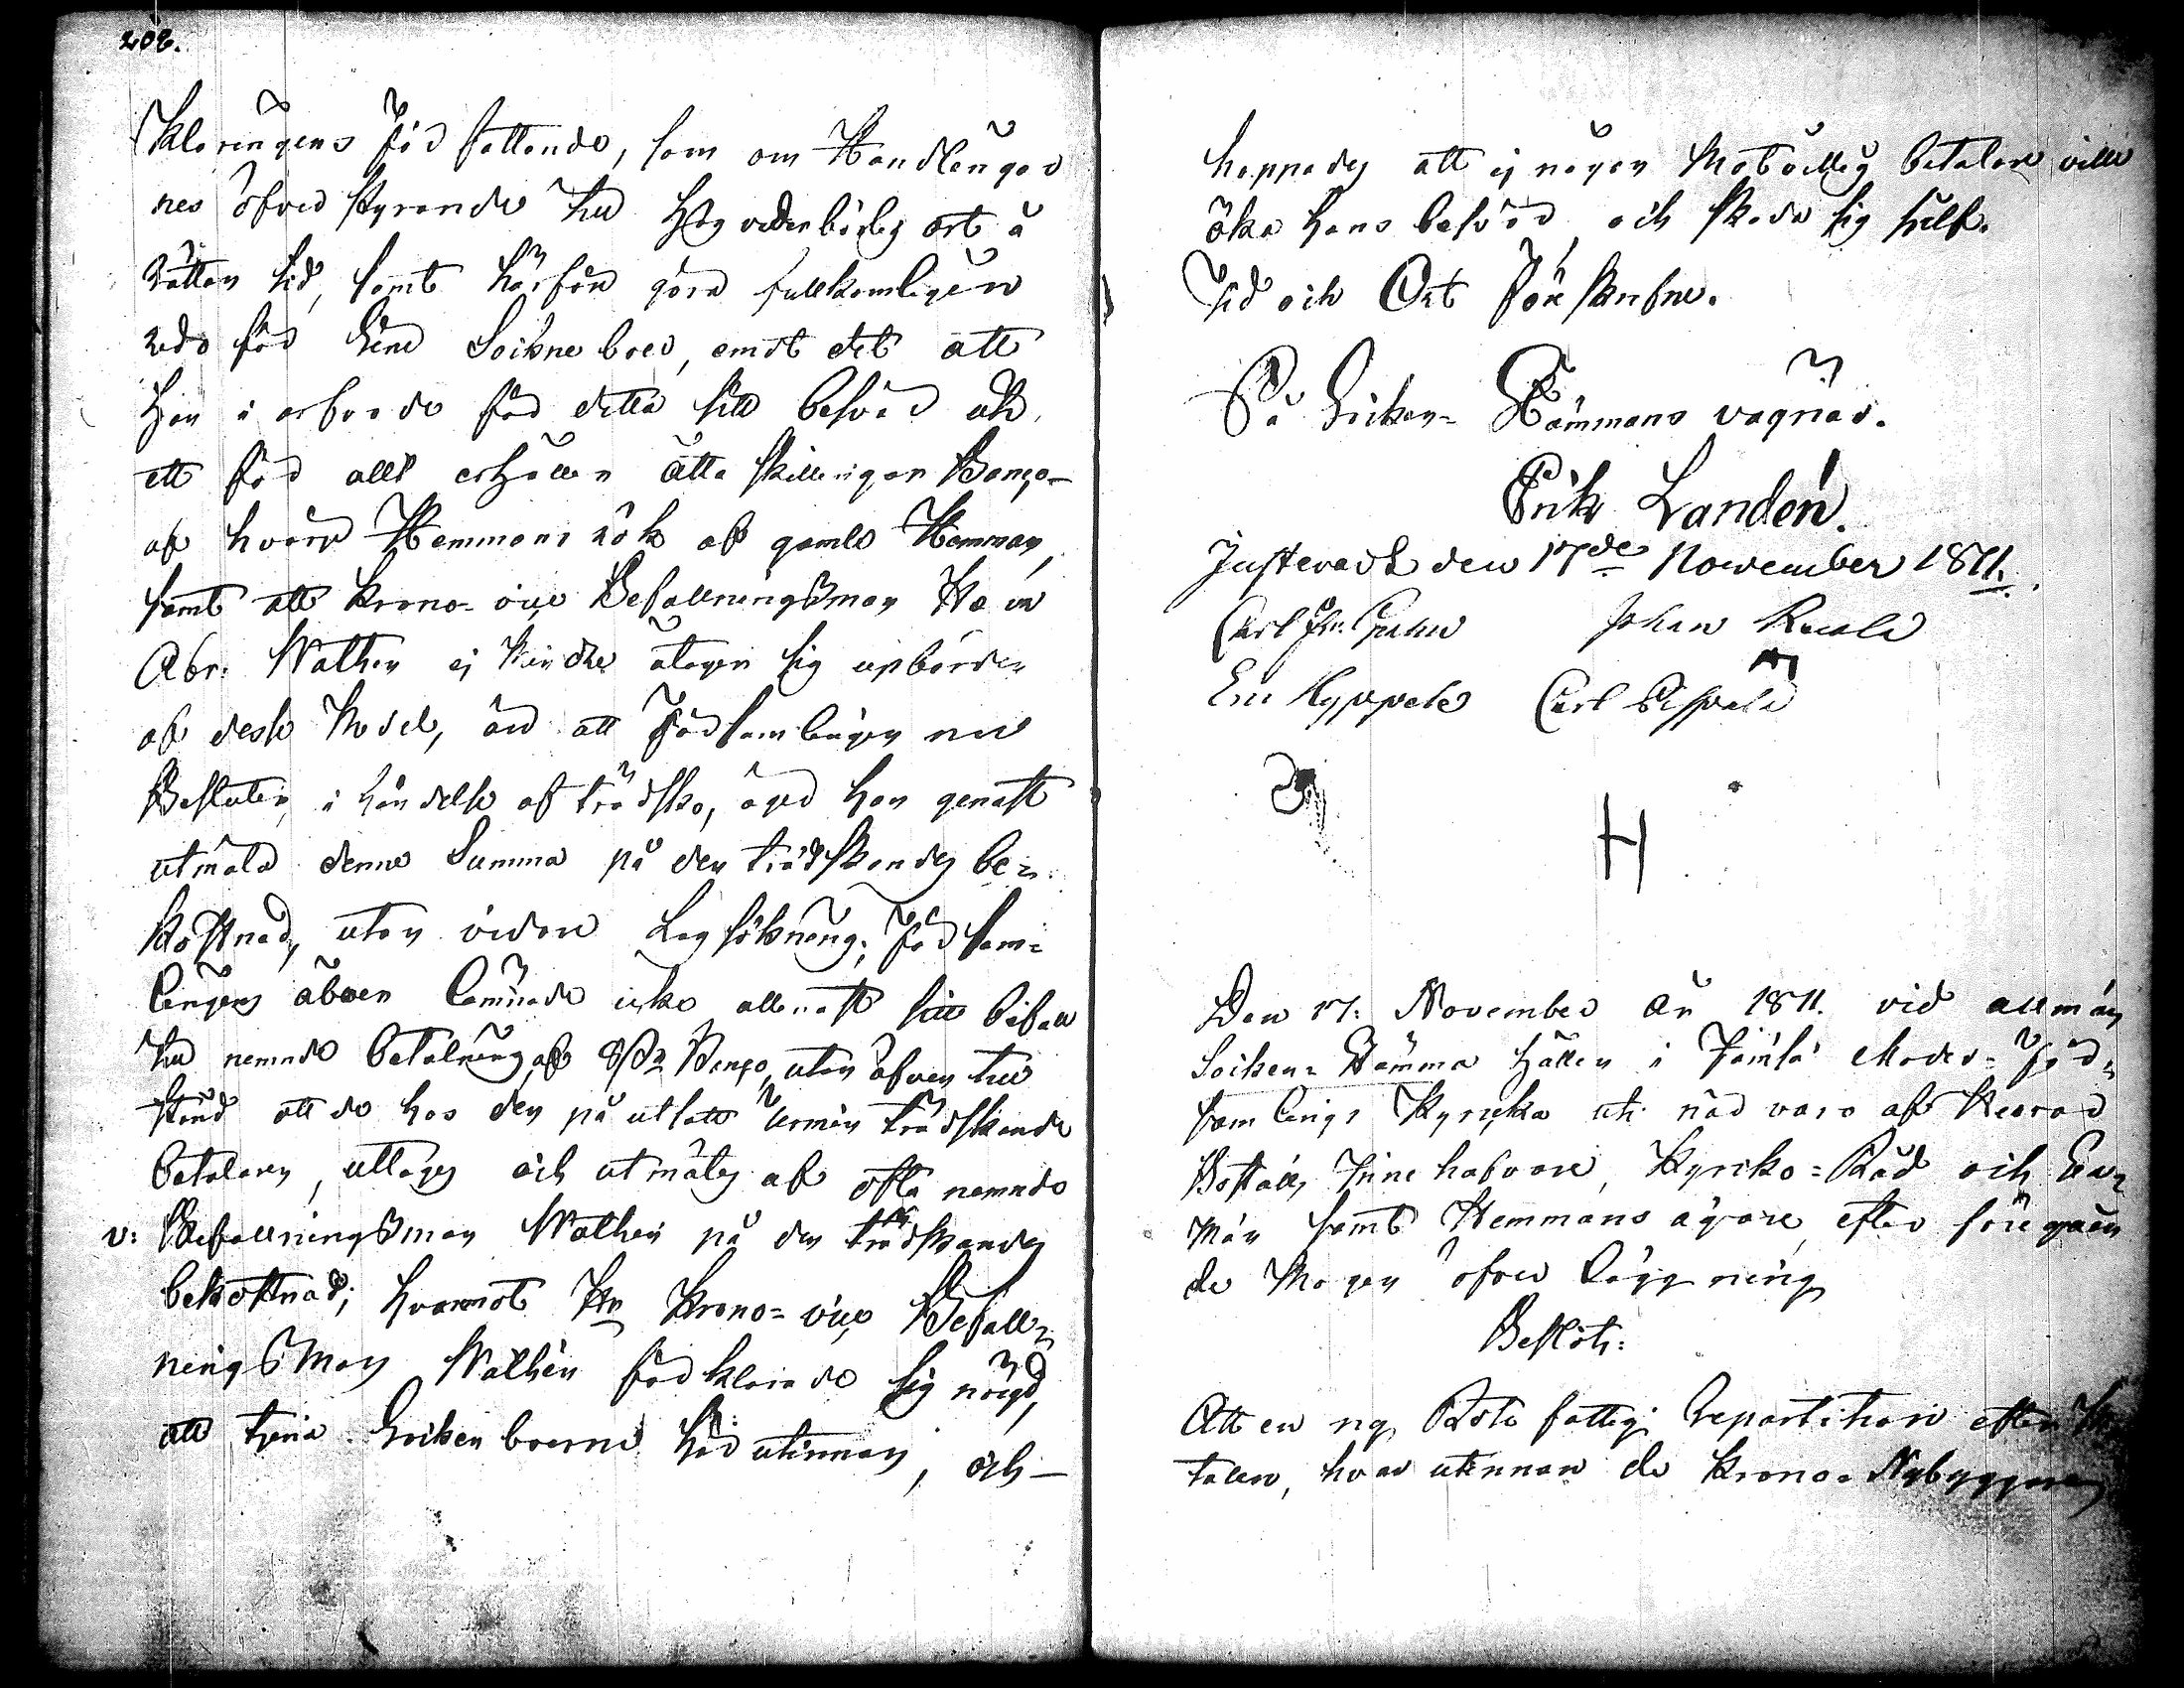 208.
Klaringens för fattande, som om Handlingar
nes öfver styrande till Hög vederbörlig ort å
Rätten tid, samt härföre göra fullkomligen
redo för sine Sockne boer, emot det att
Han i arfvode för detta sitt besvär uti
ett för allt erhåller åtta skillingar Banco
af hvarje Hemmans rök af gamle Hemman,
samt att Krono- vice Befallningsman Herr
Abr. Wathen ej åtager sig upbörden
af desse Medel, än att Församlingen nu
Besluter, i händelse af trädsko, äger han genast
utmäta denne Summa på den trädskandes be-
kostnad, utan vidare Lagsökning; Försam-
lingen äfven lämnade icke allenast sitt bifall
till nemnde betalning af 8 sk Banco, utan äfven till-
stånd att de hos den på utsatt termin trädskande
betalaren, uttages och utmätes af ofta nemnde
v: Befallningsman Wathen på den trädskandes
bekostnad; hvaremot Hr Krono- vice Befall-
ningsman Wathén förklarade sig nöigd,
att tjena Socken boerne här utinnan, och
hoppades att ej någon Motvillig betalare ville
öka Hans besvär, och skada sig sielf.
Tid och Ort Förskrefne.
På Socken- Stämmans vägnar.
Erik Landén.
Justeradt den 17de November 1811.
Carl Johan
Eric Hyppele Carl
H
Den 17. November År 1811. vid allmän
Socken- Stämma hållen i Jämsä Moder- För-
samlings Kyrcka uti när varo af Herrar
Boställs Innehafvare, Kyrcko- Råd och Sex-
män samt Hemmans ägare, efter föregåen
de Mogen öfver läggning
Beslöts:
Att en ny Rote fattig repartition efter
talen, hvar utinnan de Krono- Nybyggare